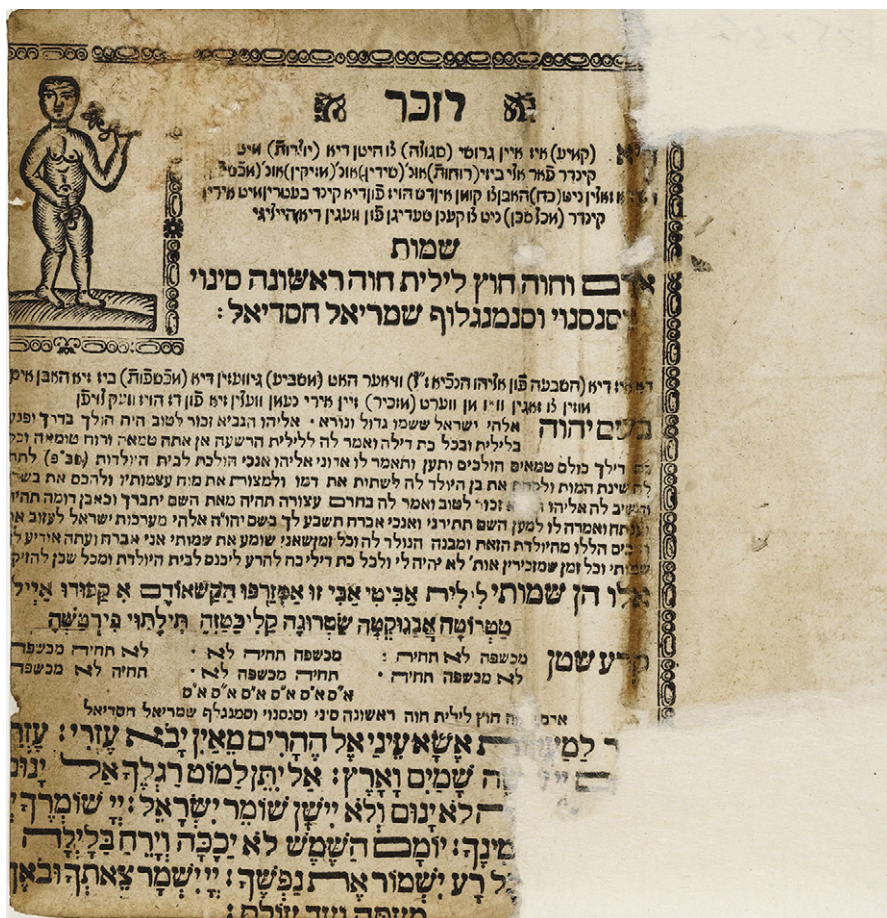 וזכר
דיא (קמיע) איז איין גרוסי (סגולה) צו היטן דיא (יולדות) מיט
קינדר פאר אלי ביזי (רוחות) אונ' (שידין) אונ' (מזיקין) אונ'
ניט (כח) האבן צו קומן אין דש הויז פון דיא קינד בעטרין מיט אירין
קינדר ניט צו קענן שעדיגן פון וועגין דיא הייליגי
שמות
אדם וחוה חוץ לילית חוה ראשונה סינוי
וסנסנוי וסנמנגלוף שמריאל חסדיאל:
דא איז דיא (השבעה פון אליהו הנביא ז"ל) וויא ער האט (משביע) גיוועזין דיא (מכשפות) ביז זיא האבן אים
מוזין צו זאגין ווען מן ווערט (מזכיר) זיין אירי נעמן וועלין זיא פון דז הויז וועק לויפן
בשם יהוה אלהי ישראל ששמו גדול ונורא · אליהו הנביא זכור לטוב היה הולך בדרך ופגע
בלילית ובכל כת דילה ואמר לה ללילית הרשעה אן אתה טמאה ורוח טומאה וכל
כת דילך כולם טמאים הולכים ותען ותאמר לו אדוני אליהו אנכי הולכת לבית היולדות
לה שינת המות ולקחת את בן היולד לה לשתות את דמו ולמצוץ את מוח עצמותיו ולהכם את
והשיב לה אליהו זכור לטוב ואמר לה בחרם עצורה תהיה מאת השם יתברך וכאבן דומה תהיה
ואמרה לו למען השם תתירני ואנכי אברח תשבע לך בשם יהו"ה אלהי מערכות ישראל לעזוב
הללו מהיולדת הזאת ומבנה הנולד לה וכל זמן שאני שומע את שמותי אני אברח ועתה אודיע
שמותי וכל זמן שמזכירין אות' לא יהיה לי ולכל כת דילי כח להרע ליכנס לבית היולדת ומכל שכן להזיק
אלו הן שמותי לילית אביטי אביזו אמזרפו הקשאודם א קפודו
טטרוטה אבנוקטה שטרונה קליכטזה תילתוי פירטשה
קרע שטן מכשפה לא תחיה : מכשפה תחיה לא · לא תחיה מכשפה
לא מכשפה תחיה · תחיה מכשפה לא · תחיה לא מכשפה
א"ס א"ס א"ס א"ס א"ס א"ס
חוץ לילית חוה ראשונה סיני וסנסנוי וסמנגלף שמריאל חסדיאל
אֶשָּׂא עֵינַי אֶל הֶהָרִים מֵאַיִן יָבֹא עֶזְרִי :
שָׁמַיִם וָאָרֶץ : אַל יִתֵּן לַמּוֹט רַגְלֶךָ אַל יָנוּם
לֹא יָנוּם וְלֹא יִישָׁן שׁוֹמֵר יִשְׂרָאֵל : יְיָ שׁוֹמְרֶךָ
יוֹמָם הַשֶּׁמֶשׁ לֹא יַכֶּכָּה וְיָרֵחַ בַּלָּיְלָה
רָע יִשְׁמוֹר אֶת נַפְשֶׁךָ : יְיָ יִשְׁמָר צֵאתְךָ וּבֹאֶךָ
מֵעַתָּה וְעַד עוֹלָם :